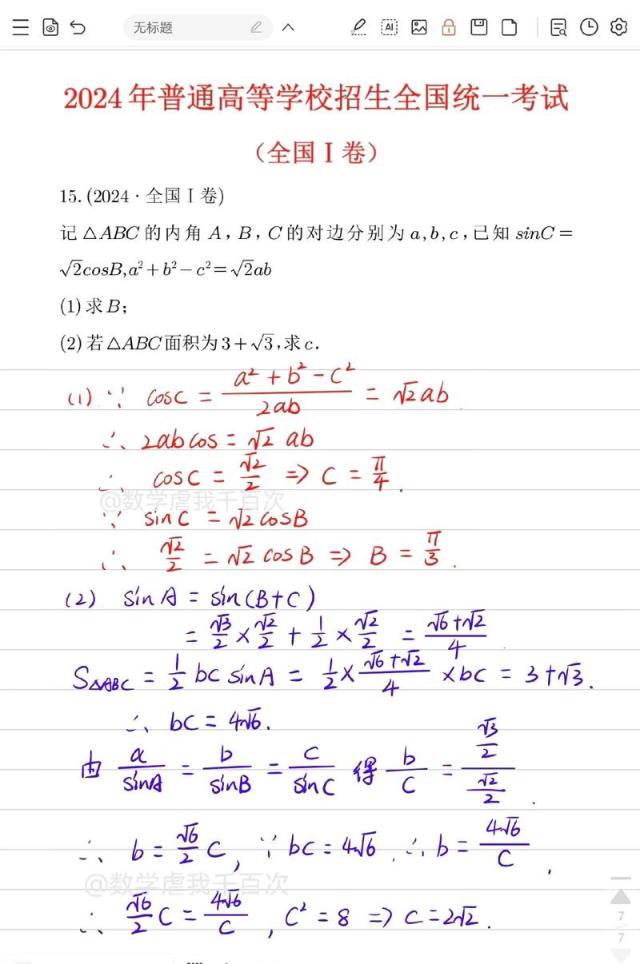 无标题
AI
2024年普通高等学校招生全国统一考试
(全国Ⅰ卷)
15.(2024·全国Ⅰ卷)
记△ABC的内角A,B,C的对边分别为a,b,c,已知sinC=
√2cosB,a²+b²-c²=√2ab
(1)求B;
(2)若△ABC面积为3+√3,求c.
(1) ∵ cosC = (a²+b²-c²)/(2ab) = √2ab
∴ 2abcos = √2 ab
∴ cosC = √2/2 ⇒ C = π/4.
@数学虐我千百次
∵ sinC = √2cosB
∴ √2/2 = √2 cosB ⇒ B = π/3.
(2) sinA = sin(B+C)
= √3/2 × √2/2 + 1/2 × √2/2 = (√6+√2)/4
S△ABC = 1/2 bc sinA = 1/2 × (√6+√2)/4 × bc = 3+√3.
∴ bc = 4√6.
由 a/sinA = b/sinB = c/sinC 得 b/c = (√3/2)/(√2/2).
∴ b = √6/2 c, ∵ bc = 4√6. ∴ b = 4√6/c,
@数学虐我千百次
∴ √6/2 c = 4√6/c, c² = 8 ⇒ c = 2√2.
7
7